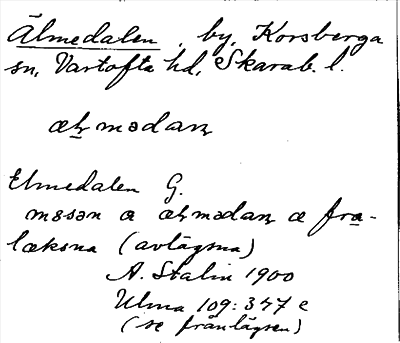 Älmedalen, by, Korsberga
sn, Vartofta hd, Skarab. l.
æɽmədaɳ
Elmedalen G.
æɽmədaɳ æ fra-
læksna (avlägsna)
A. Stalin 1900
Ulma 109:347 c
(se frånlägsen)